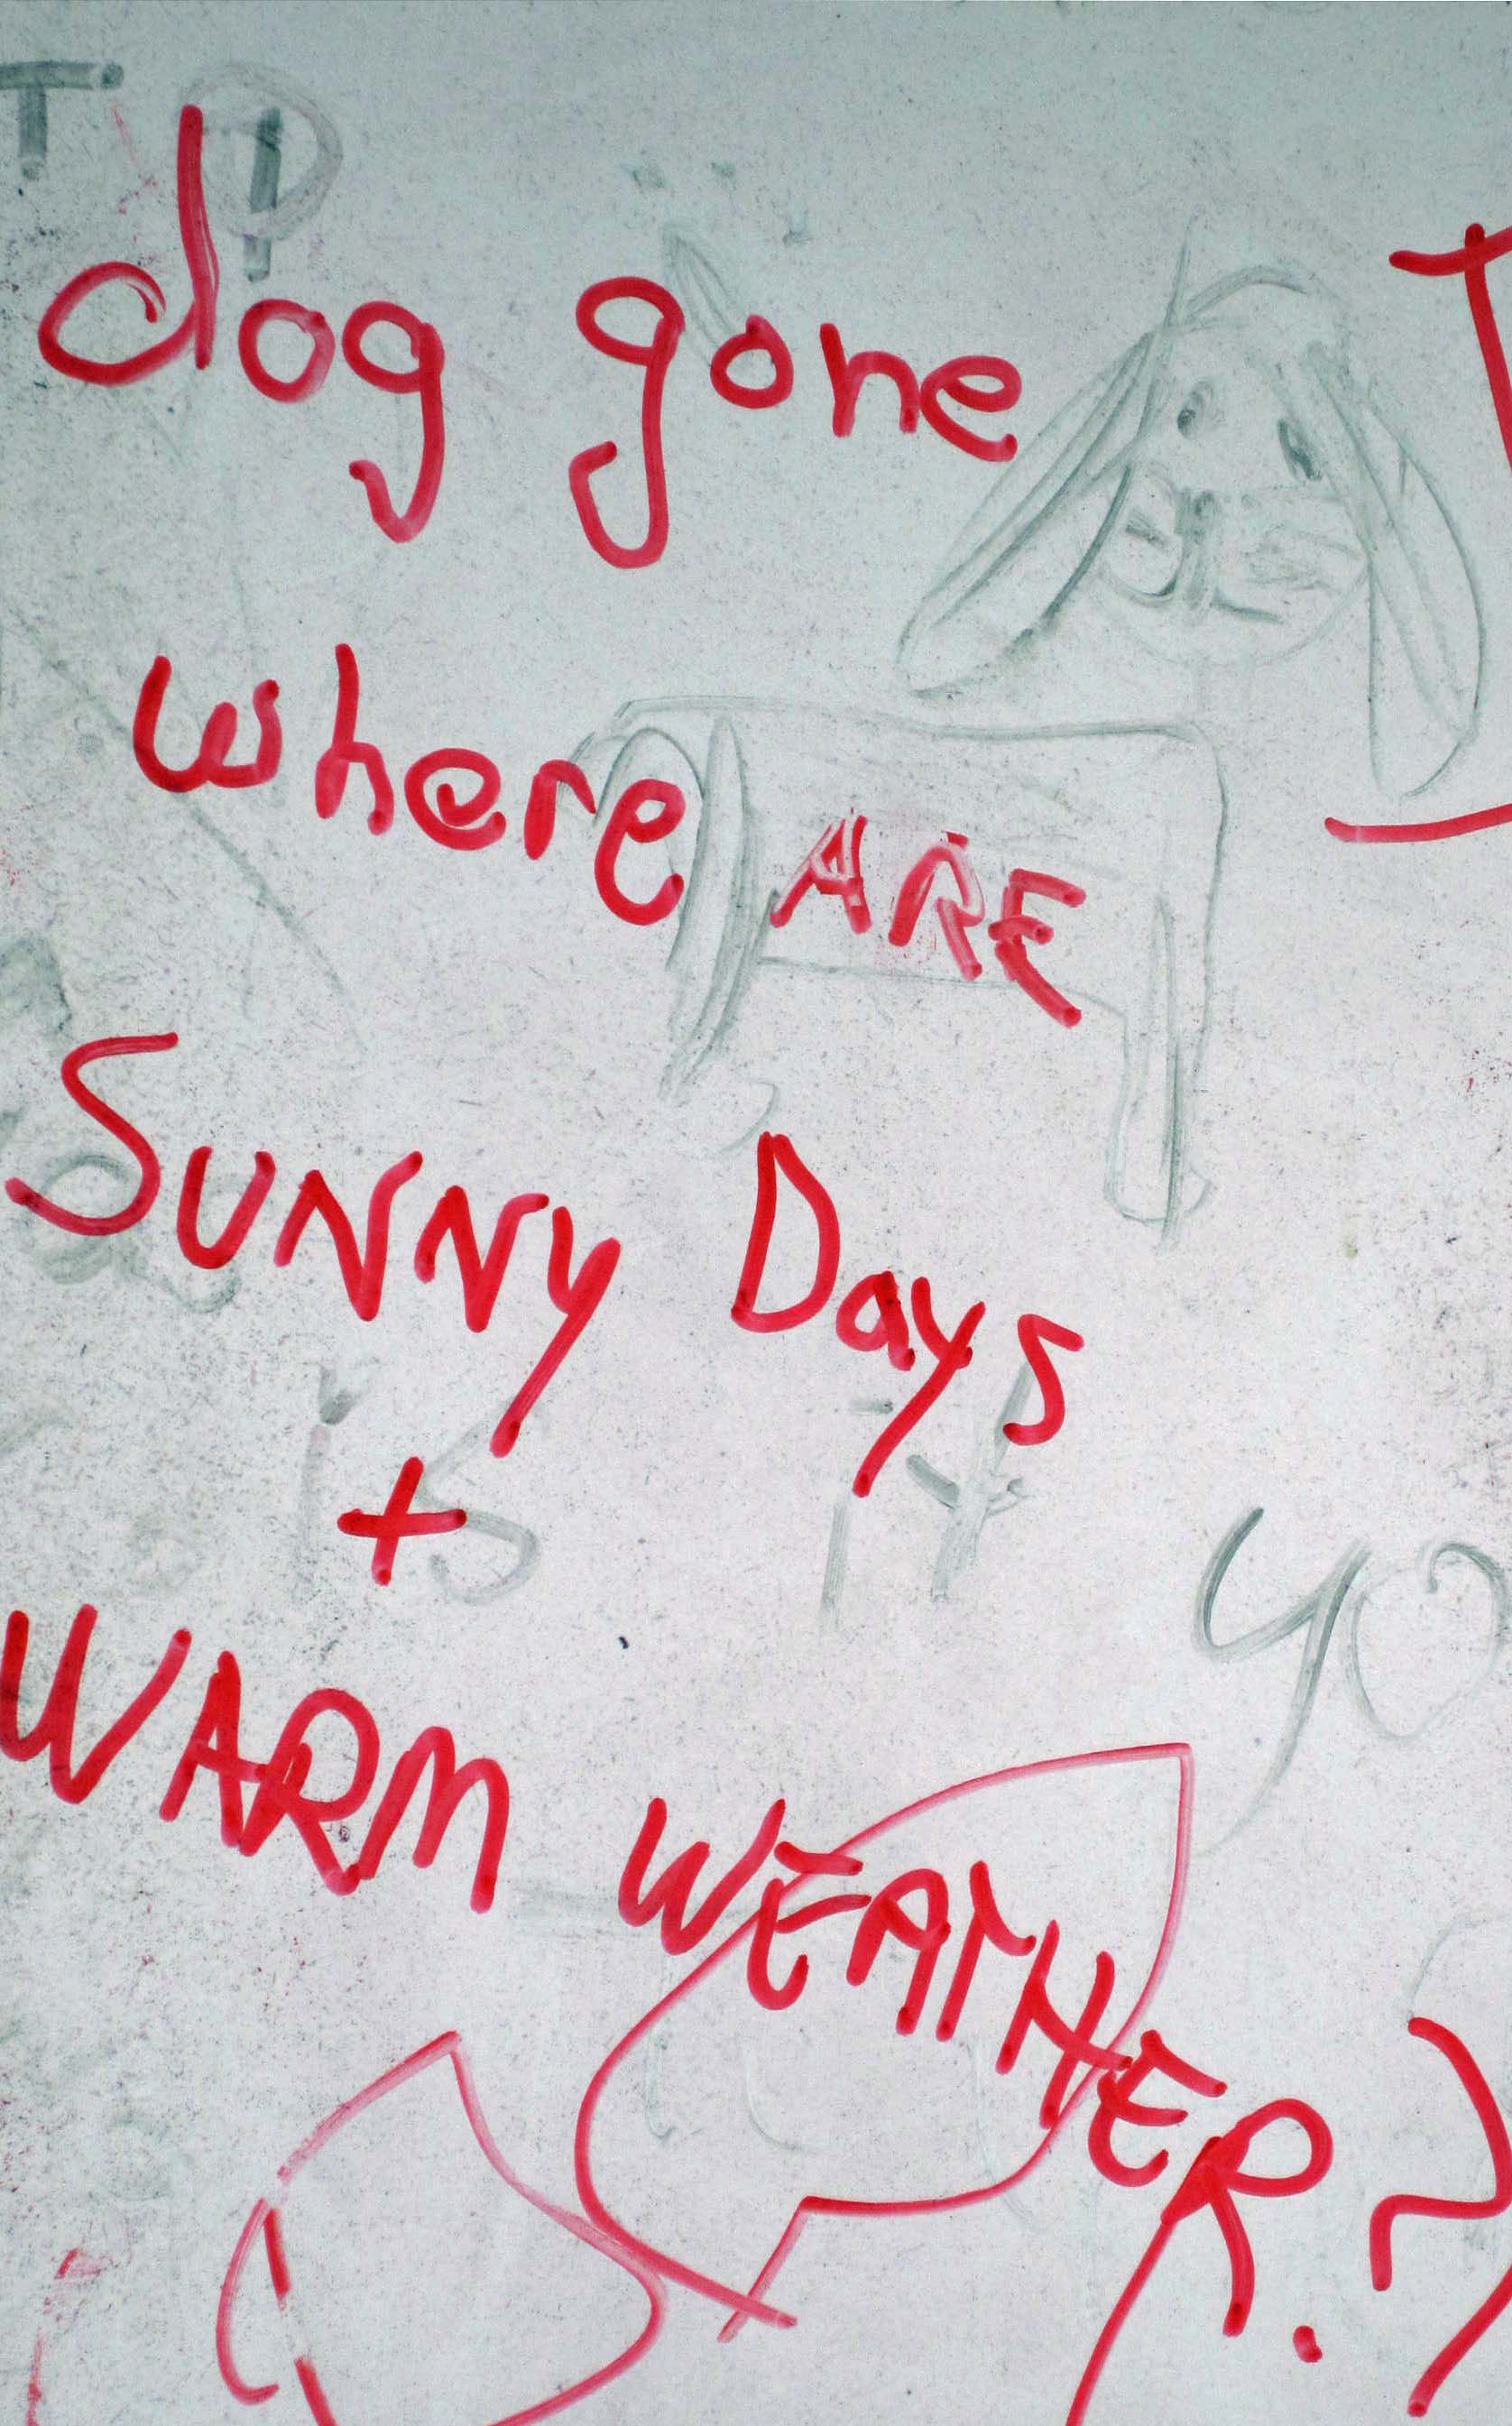 dog gone
where ARE
SUNNY Days
+
WARM WEATHER.
is
yo